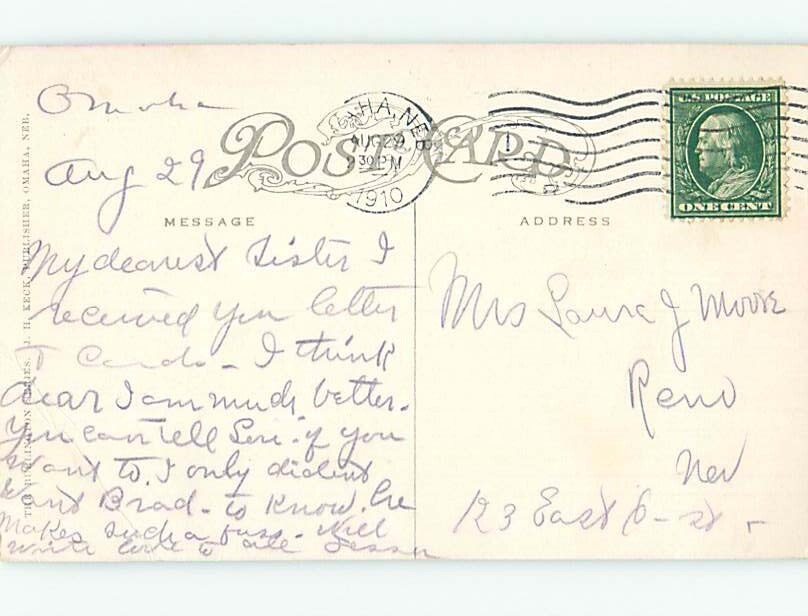 Omaha
Aug 29
POST CARD
OMAHA, NEB.
AUG 29
2 30 PM
1910
U.S. POSTAGE
ONE CENT
MESSAGE
ADDRESS
My dearest Sister I
received your letter
& Cards - I think
dear I am much better.
You can tell if you
want to. I only dident
want Brad - to know. he
makes such a fuss. Will
write love to all
Mrs Laura J Moore
Reno
Nev
123 East 6 - st -
THE BURLINGTON SERIES. J. H. KECK, PUBLISHER, OMAHA, NEB.